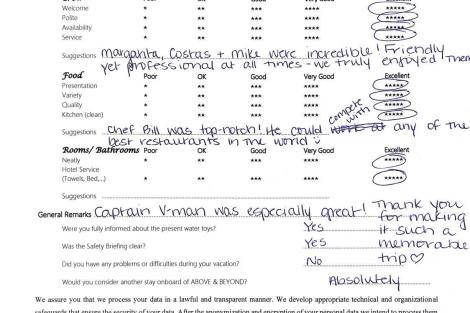 Welcome * ** *** **** *****
Polite * ** *** **** *****
Availability * ** *** **** *****
Service * ** *** **** *****
Suggestions margarita, Costas + mike were incredible! Friendly
yet professional at all times - we truly enjoyed them
Food Poor OK Good Very Good Excellent
Presentation * ** *** **** *****
Variety * ** *** **** *****
Quality * ** *** **** *****
Kitchen (clean) * ** *** **** *****
compete with
Suggestions Chef Bill was top-notch! He could any of the
best restaurants in the world
Rooms/ Bathrooms Poor OK Good Very Good Excellent
Neatly * ** *** **** *****
Hotel Service
(Towels, Bed,..) * ** *** **** *****
Suggestions
General Remarks Captain V-man was especially great! Thank you
for making
it such a
memorable
trip ♡
Were you fully informed about the present water toys? Yes
Was the Safety Briefing clear? Yes
Did you have any problems or difficulties during your vacation? No
Would you consider another stay onboard of ABOVE & BEYOND? Absolutely
We assure you that we process your data in a lawful and transparent manner. We develop appropriate technical and organizational
safeguards that ensure the security of your data. After the anonymization and encryption of your personal data we intend to process them